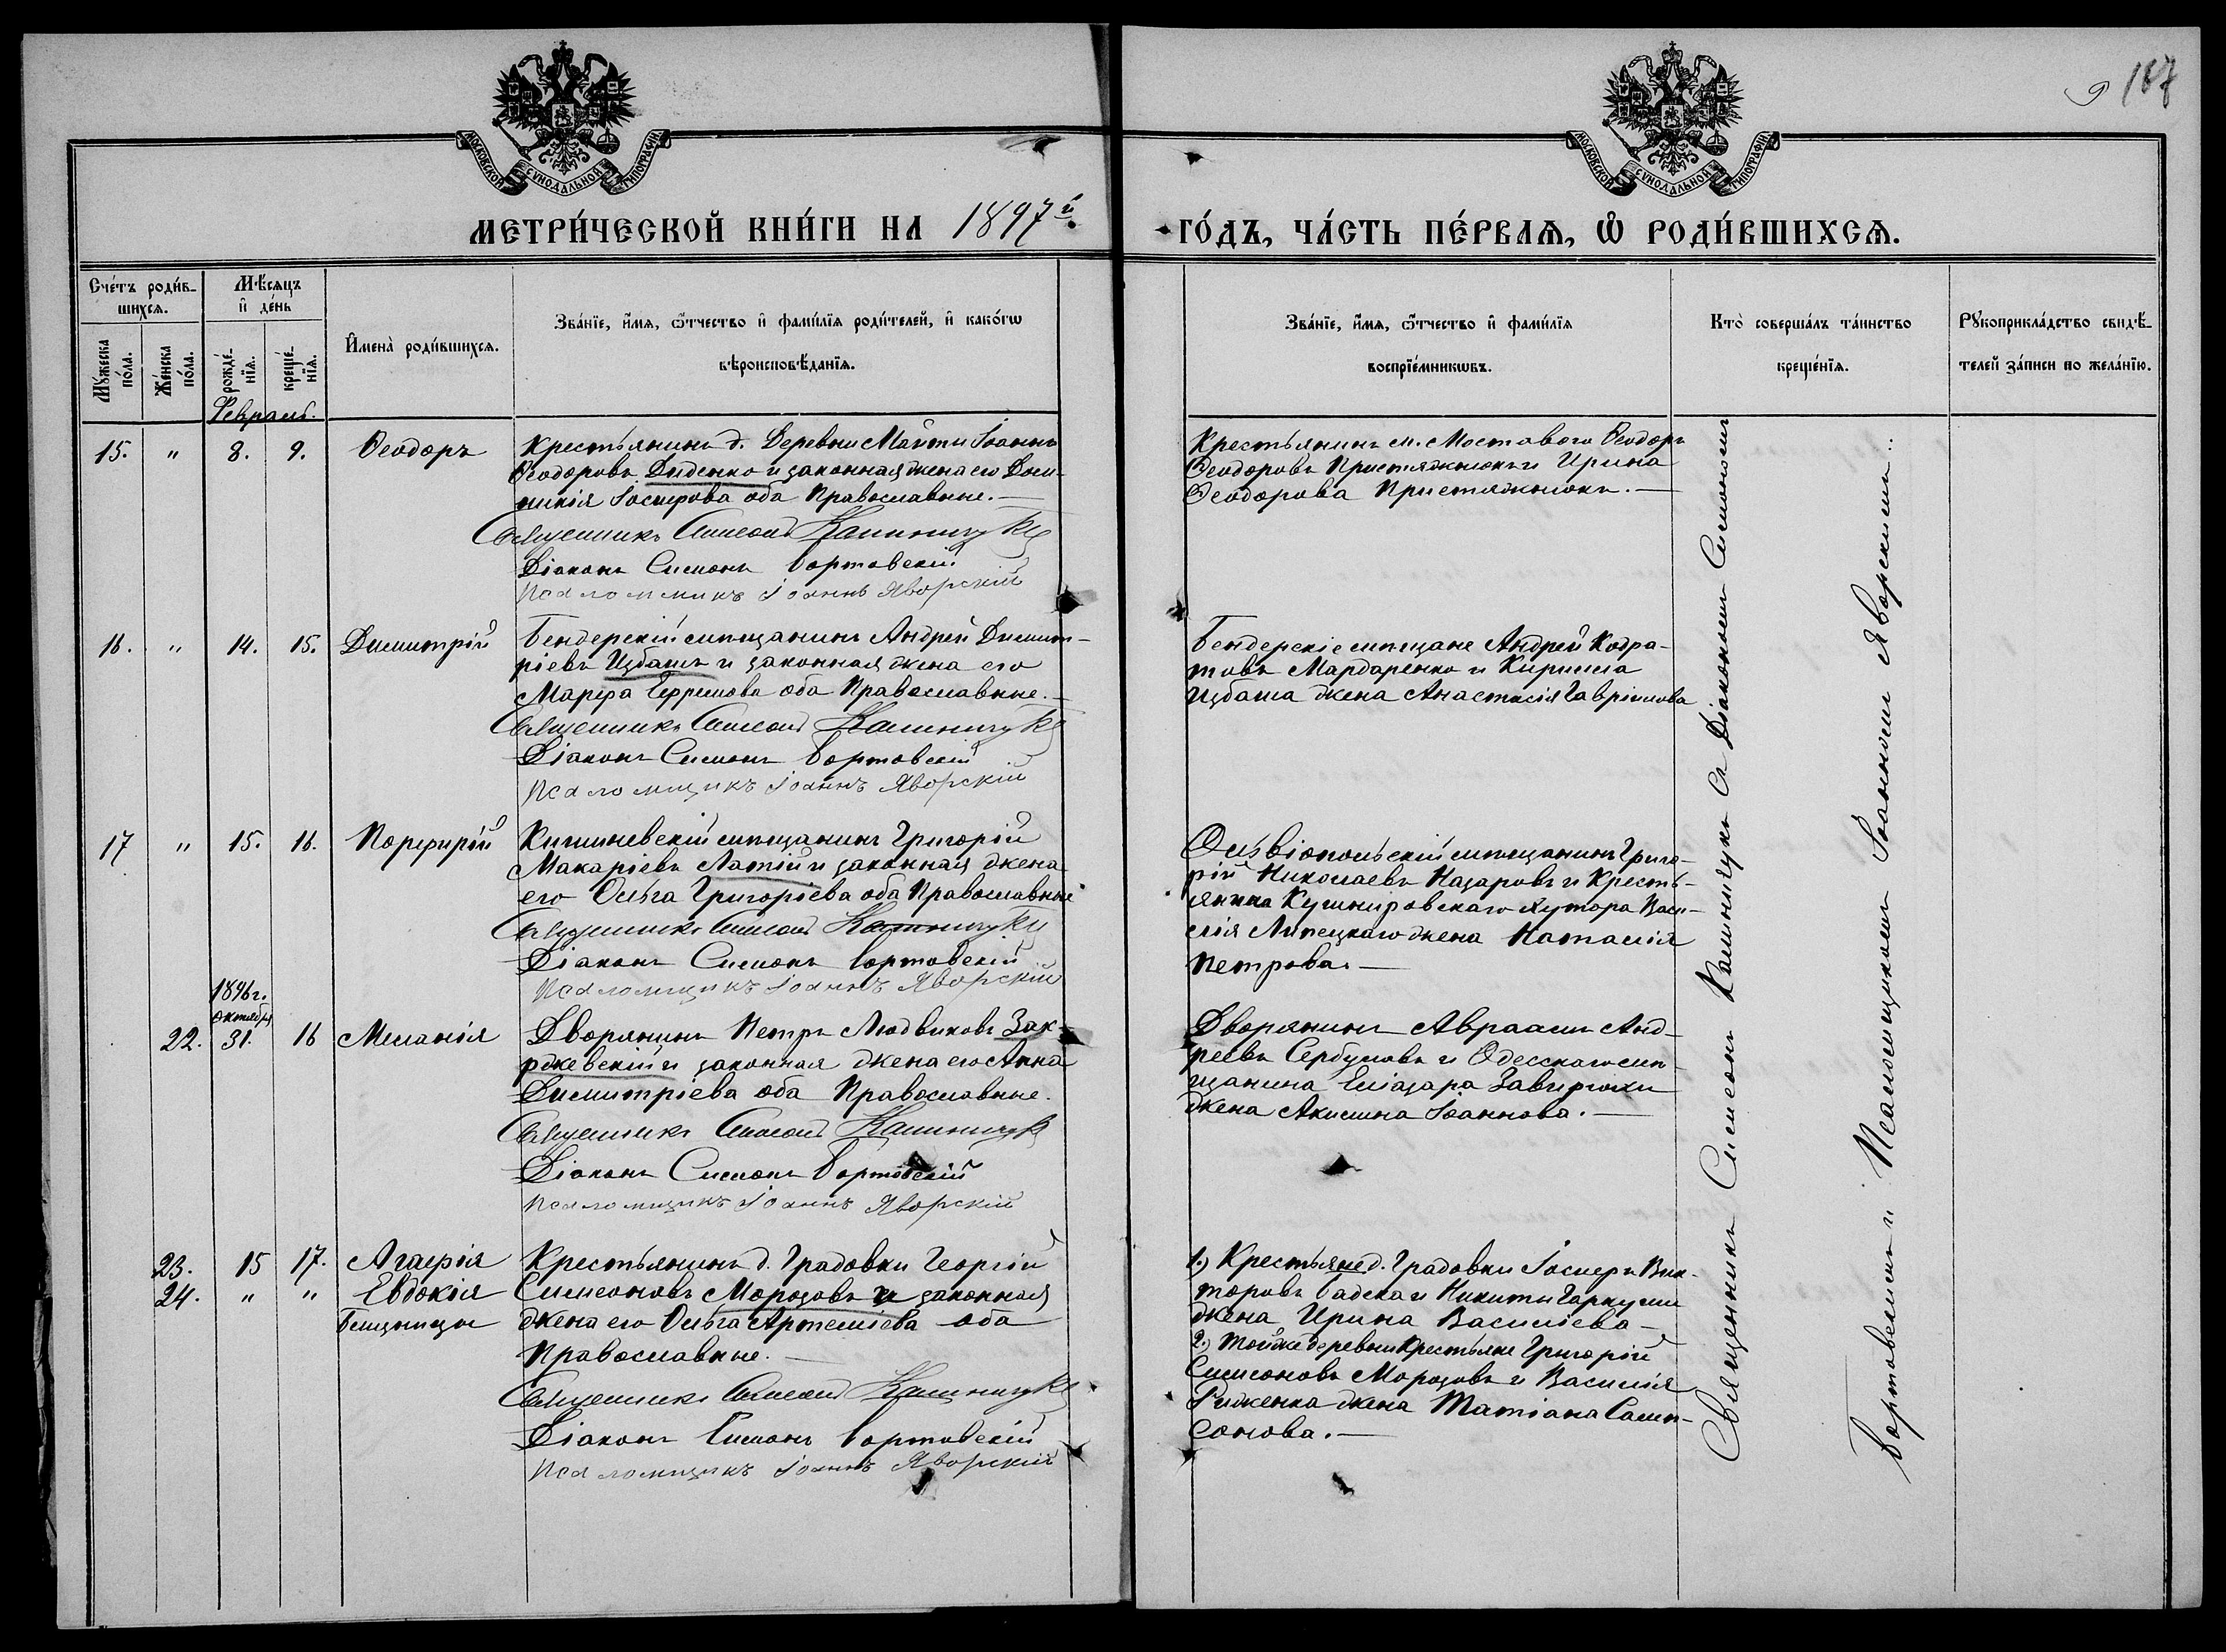 9 187
МОСКОВСКОЙ СѴНОДАЛЬНОЙ ТИПОГРАФІИ
МОСКОВСКОЙ СѴНОДАЛЬНОЙ ТИПОГРАФІИ
МЕТРИ́ЧЕСКОЙ КНИ́ГИ НА 1897й
ГО́ДЪ, ЧА́СТЬ ПЕ́РВАѦ, Ѡ҆ РОДИ́ВШИХСѦ.
Сче́тъ роди́в-
шихсѧ.
Мꙋ́жеска по́ла.
Же́нска по́ла.
Мѣ́сѧцъ
и҆ де́нь
рожде́-нїѧ.
креще́-нїѧ.
Февраль.
И҆мена̀ роди́вшихсѧ.
Зва́нїе, и҆́мѧ, ѻ҆́тчество и҆ фами́лїѧ роди́телей, и҆ како́гѡ
вѣроисповѣ́данїѧ.
Зва́нїе, и҆́мѧ, ѻ҆́тчество и҆ фами́лїѧ
воспрїе́мникѡвъ.
Кто̀ соверша́лъ та́инство
креще́нїѧ.
Рꙋкоприкла́дство свидѣ́-
телей за́писи по жела́нїю.
15. " 8. 9. Ѳеодоръ
Крестьянинъ д. Деревни Майты Іоаннъ
Ѳеодоровъ Диденко и законная жена его Доми-
никія Іосифова оба Православные.
Священникъ Симеонъ Калинничукъ
Діаконъ Симонъ Бортовскій
Псаломщикъ Іоаннъ Яворскій
Крестьянинъ м. Мостового Ѳеодоръ
Ѳеодоровъ Пристяжнюкъ и Ирина
Ѳеодорова Пристяжнюкъ.
16. " 14. 15. Димитрій
Бендерскій мѣщанинъ Андрей Димит-
ріевъ Избашъ и законная жена его
Марфа Ефремова оба Православные.
Священникъ Симеонъ Калинничукъ
Діаконъ Симонъ Бортовскій
Псаломщикъ Іоаннъ Яворскій
Бендерскіе мѣщане Андрей Кодра-
товъ Мардаренко и Кирилла
Избаша жена Анастасія Гавріилова
17 " 15. 16. Порфирій
Кишиневскій мѣщанинъ Григорій
Макаріевъ Латій и законная жена
его Ольга Григоріева оба Православные
Священникъ Симеонъ Калинничукъ
Діаконъ Симонъ Бортовскій
Псаломщикъ Іоаннъ Яворскій
Ольвіопольскій мѣщанинъ Григо-
рій Николаевъ Назаровъ и Кресть-
янина Кушнировскаго хутора Васи-
лія Липецкаго жена Наталія
Петрова.
1896 г.
октября
22. 31. 16 Меланія
Дворянинъ Петръ Людвиковъ Зак-
ржевскій и законная жена его Анна
Димитріева оба Православные.
Священникъ Симеонъ Калинничукъ
Діаконъ Симонъ Бортовскій
Псаломщикъ Іоаннъ Яворскій
Дворянинъ Авраамъ Анд-
реевъ Сербуловъ и Одесскаго мѣ-
щанина Еліазара Завирюхи
жена Акилина Іоаннова.
23. 15 17. Агафія
24. " " Евдокія
Близницы
Крестьянинъ д. Градовки Георгій
Симеоновъ Морозовъ и законная
жена его Ольга Артеміева оба
Православные.
Священникъ Симеонъ Калинничукъ
Діаконъ Симонъ Бортовскій
Псаломщикъ Іоаннъ Яворскій
1.) Крестьяне д. Градовки Іосифъ Вик-
торовъ Гадска и Никиты Гаркуши
жена Ирина Василіева
2.) Той же деревни Крестьяне Григорій
Симеоновъ Морозовъ и Василія
Риженка жена Татіана Самп-
сонова.
Священникъ Симеонъ Калинничукъ съ Діакономъ Симономъ
Бортовскимъ и Псаломщикомъ Іоанномъ Яворскимъ.